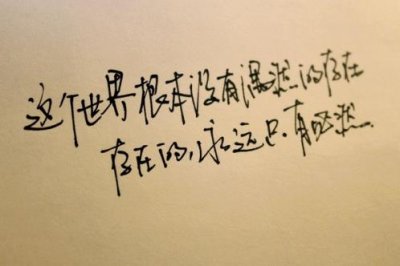 这个世界根本没有偶然的存在
存在的，永远只有必然